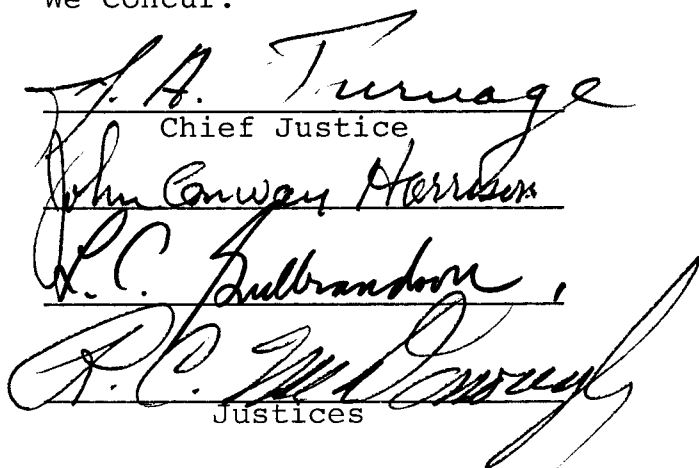 We concur:
J. A. Turnage
Chief Justice
John Conway Harrison
L. C. Gulbrandson
R. C. McDonough
Justices